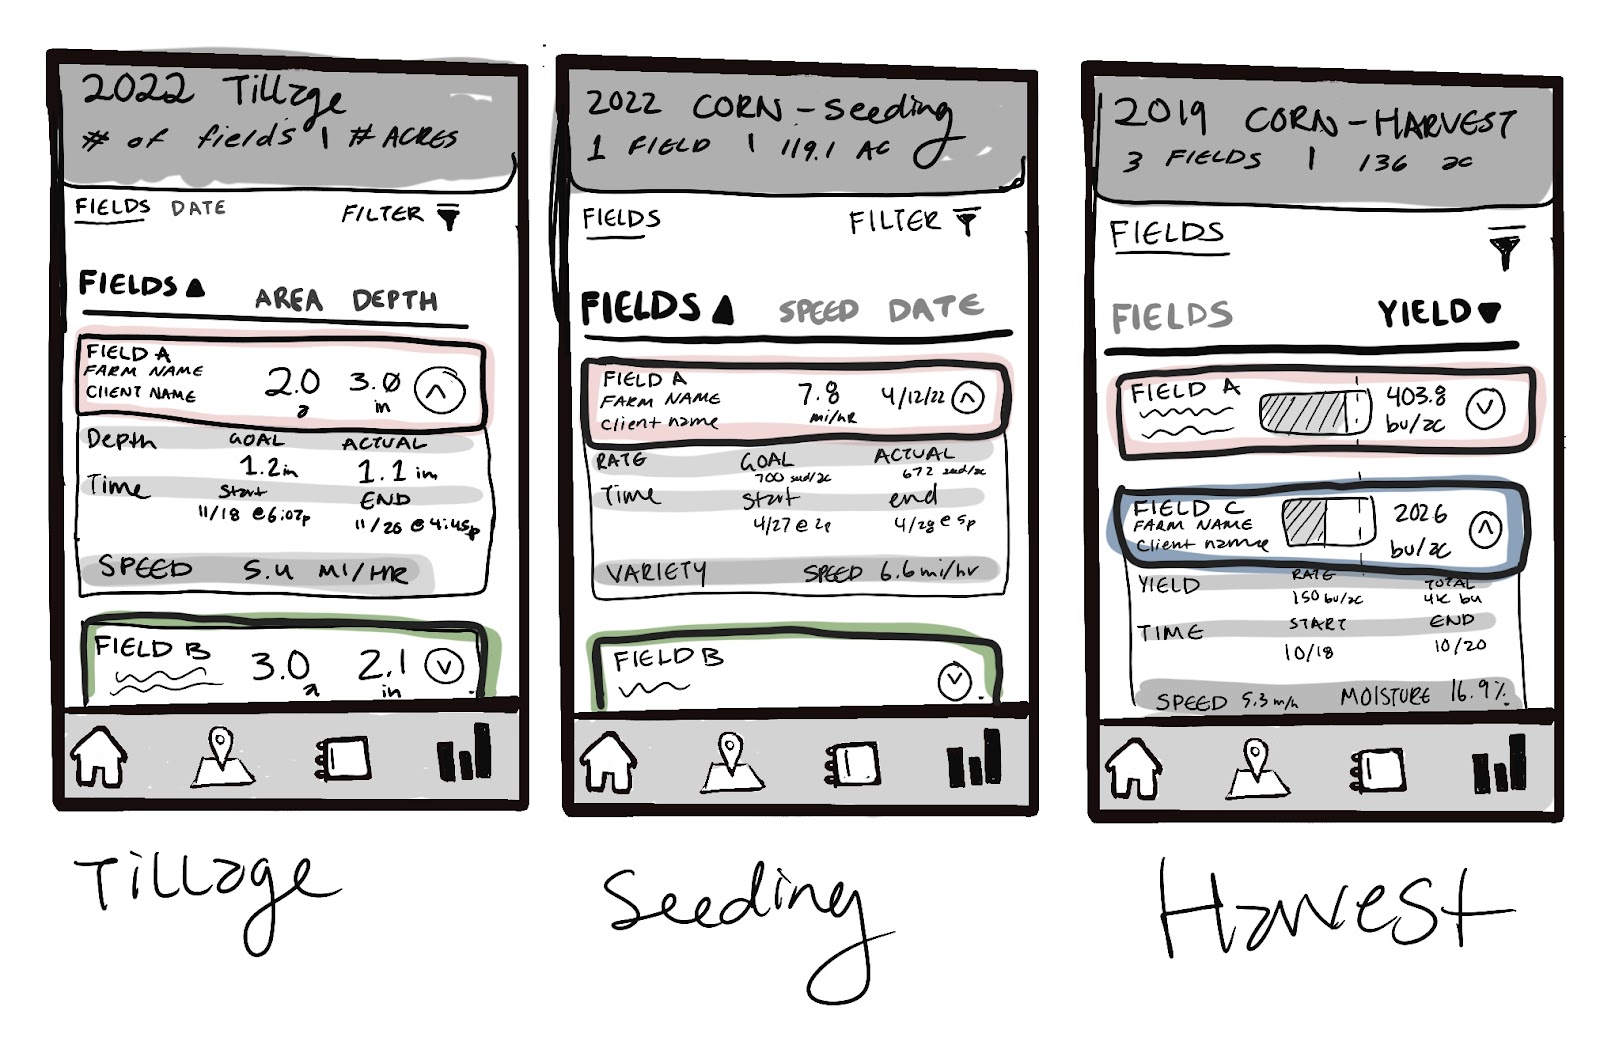 2022 Tillage
# of fields | # ACRES
FIELDS DATE FILTER
FIELDS AREA DEPTH
FIELD A
FARM NAME
CLIENT NAME
2.0 a
3.0 in
Depth GOAL ACTUAL
1.2in 1.1 in
Time Start END
11/18 @ 6:07p 11/20 @ 4:45p
SPEED 5.4 MI/HR
FIELD B
3.0 a
2.1 in
Tillage
2022 CORN - Seeding
1 FIELD | 119.1 AC
FIELDS FILTER
FIELDS SPEED DATE
FIELD A
FARM NAME
Client name
7.8 mi/HR
4/12/22
RATE GOAL ACTUAL
700 seed/ac 672 seed/ac
Time start end
4/27 @ 2p 4/28 @ 5p
VARIETY SPEED 6.6 mi/hr
FIELD B
Seeding
2019 CORN - HARVEST
3 FIELDS | 136 ac
FIELDS
FIELDS YIELD
FIELD A
403.8
bu/ac
FIELD C
FARM NAME
Client name
2026
bu/ac
YIELD RATE TOTAL
150 bu/ac 41K bu
TIME START END
10/18 10/20
SPEED 5.3 m/h MOISTURE 16.9%
Harvest